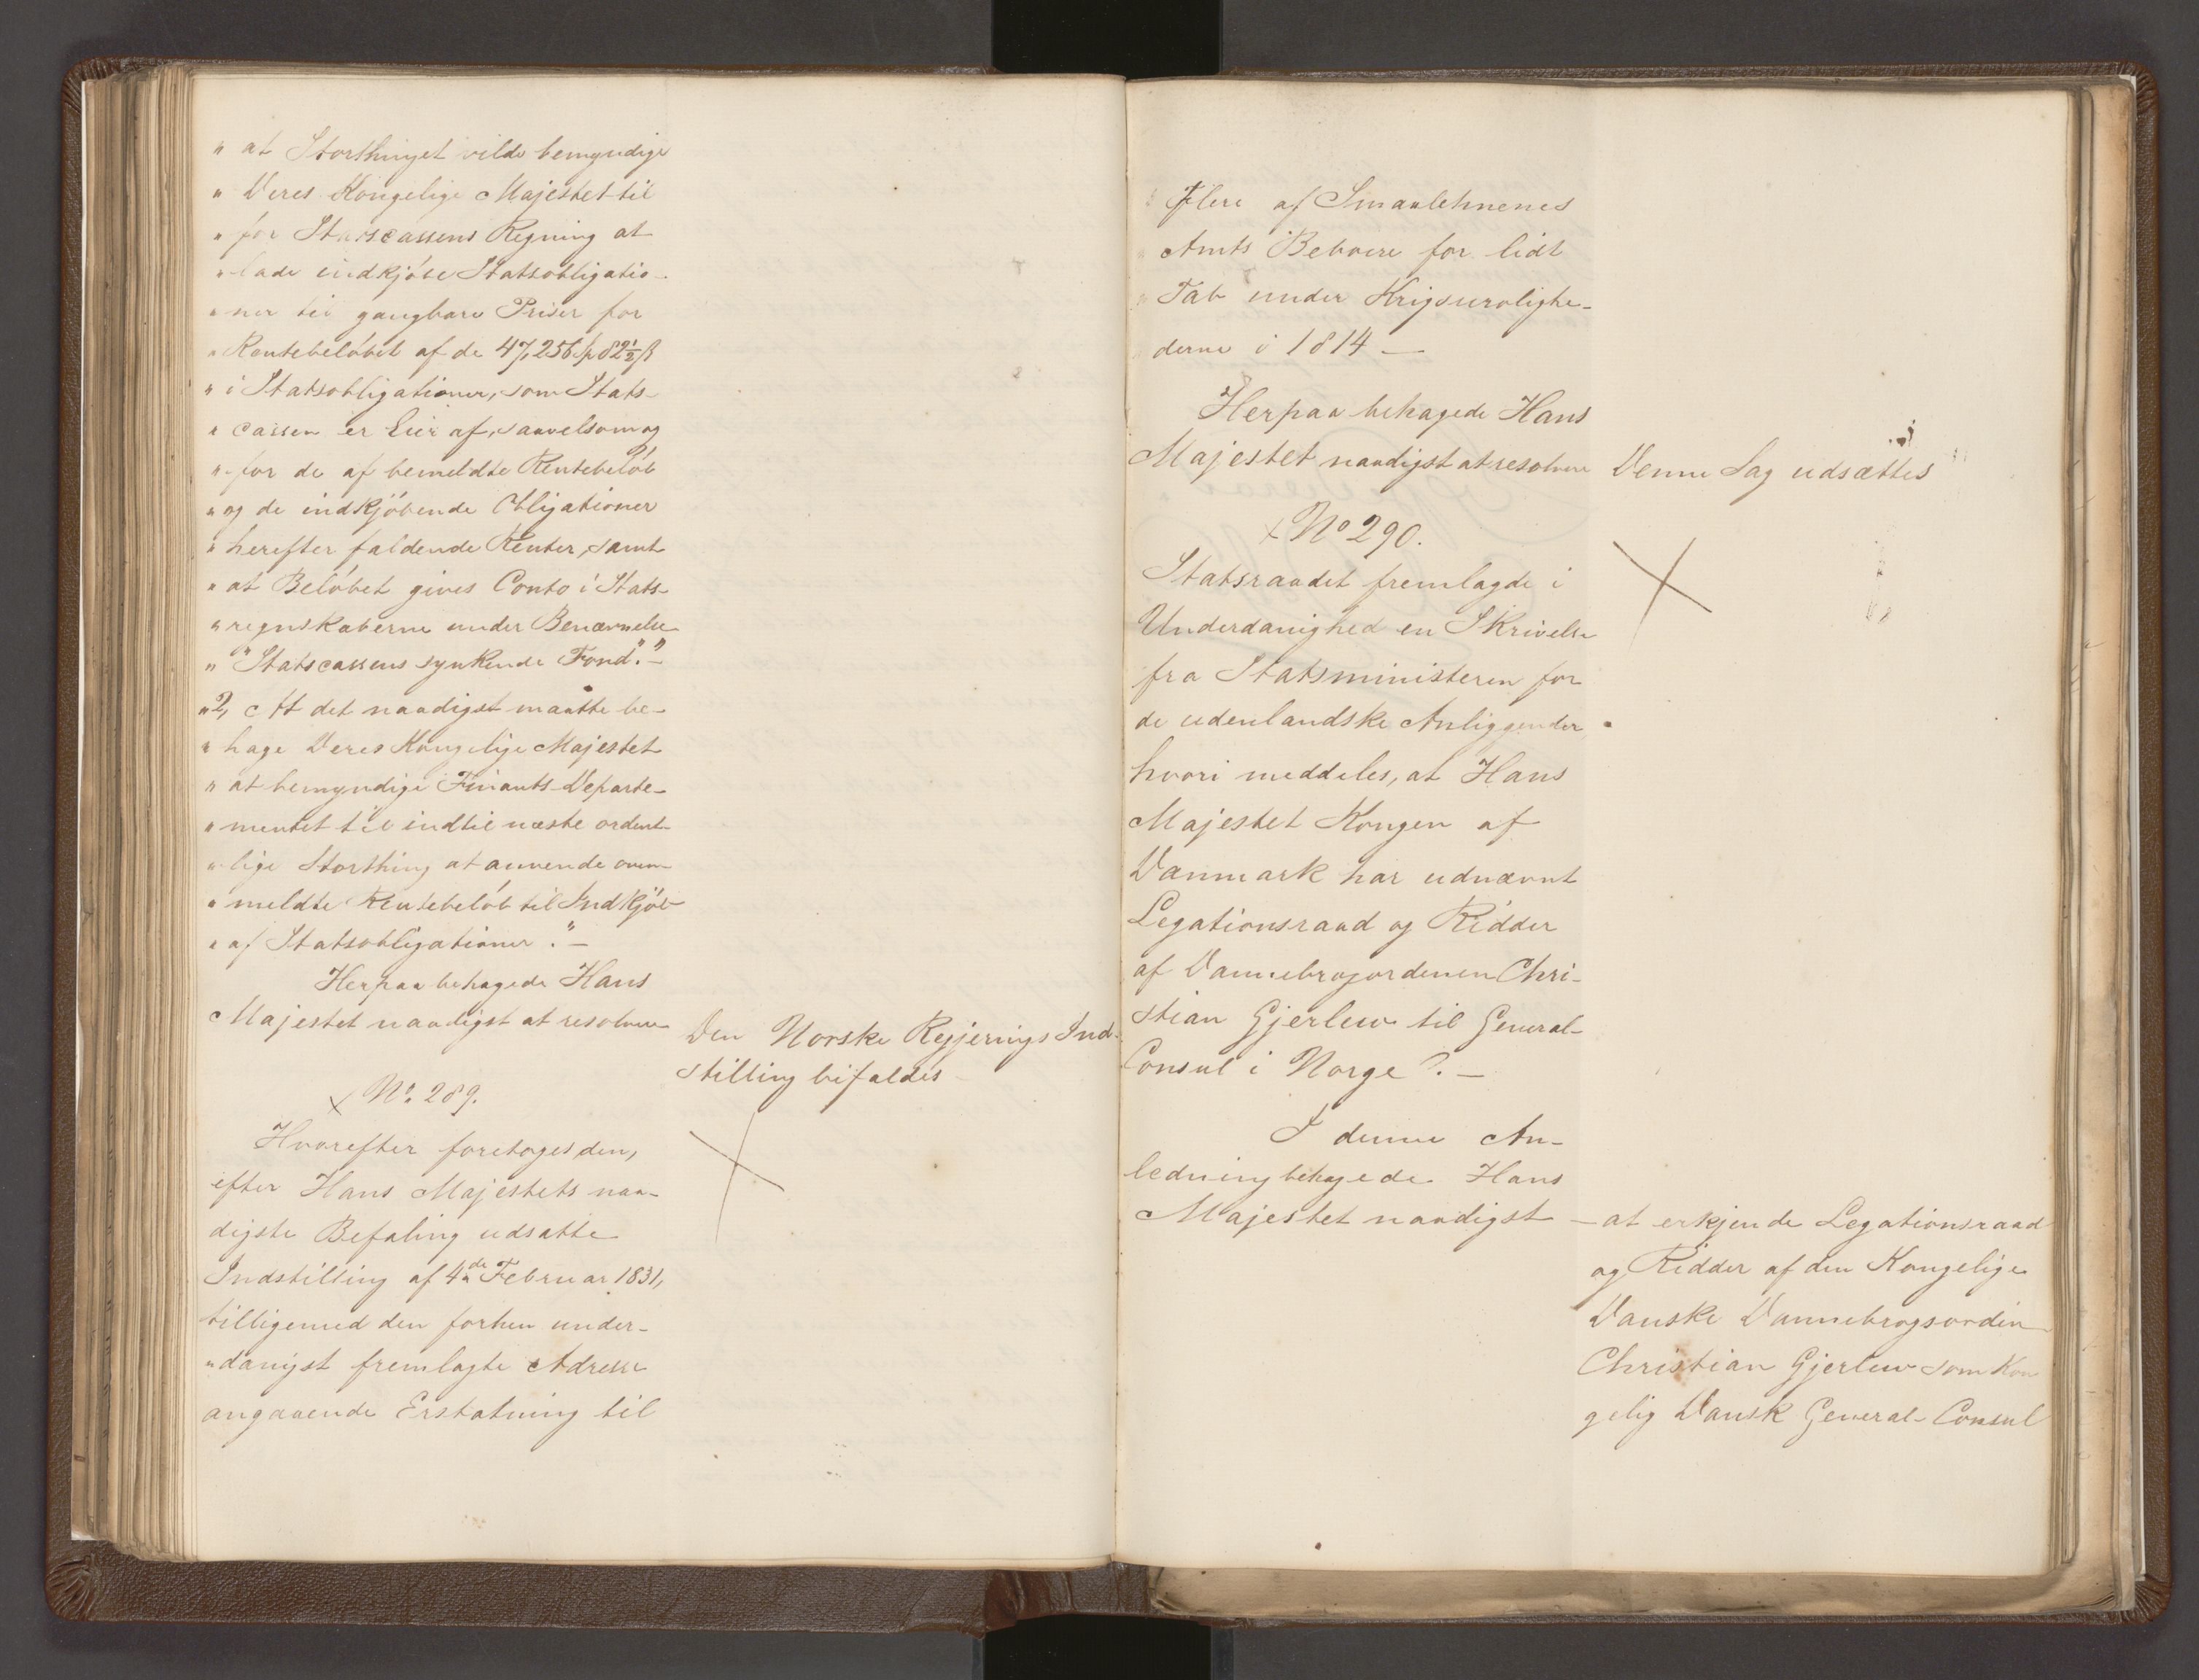 " at Storthinget vilde bemyndige
" Deres Kongelige Majestet til
" for Statscassens Regning at
" lade indkjöbe Statsobligatio-
" ner til gangbare Priser for
" Rentebelöbet af de 47,256 Sp 82½ ß
" i Statsobligationer, som Stats-
" cassen er Eier af, saavelsom og
" for de af bemeldte Rentebelöb
" og de indkjöbende Obligationer
" herefter faldende Renter, samt
" at Belöbet gives Conto i Stats-
" regnskaberne under Benævnelse
" "Statscassens synkende Fond". "-
" 2, At det naadigst maatte be-
" hage Deres Kongelige Majestet
" at bemyndige Finants-Departe-
" mentet til indtil næste ordent-
" lige Storthing at anvende oven-
" meldte Rentebelöb til Indkjöb
" af Statsobligationer." -
Herpaa behagede Hans
Majestet naadigst at resolvere
Den Norske Regjerings Ind-
stilling bifaldes
x No. 289.
Hvorefter foretoges den,
efter Hans Majestets naa-
digste Befaling udsatte
Indstilling af 4de Februar 1831,
tilligemed den forhen under-
danigst fremlagte Adresse
angaaende Erstatning til
Flere af Smaalehnenes
Amts Beboere for lidt
Tab under Krigsurolighe-
derne i 1814 —
Herpaa behagede Hans
Majestet naadigst at resolvere
Denne Sag udsættes
x No 290.
Statsraadet fremlagde i
Underdanighed en Skrivelse
fra Statsministeren for
de udenlandske Anliggender
hvori meddeles, at Hans
Majestet Kongen af
Danmark har udnævnt
Legationsraad og Ridder
af Dannebrogordenen Chri-
stian Gjerlew til General-
Consul i Norge. —
I denne An-
ledning behagede Hans
Majestet naadigst
- at erkjende Legationsraad
og Ridder af den Kongelige
Danske Dannebrogsorden
Christian Gjerlew som Kon
gelig Dansk General-Consul